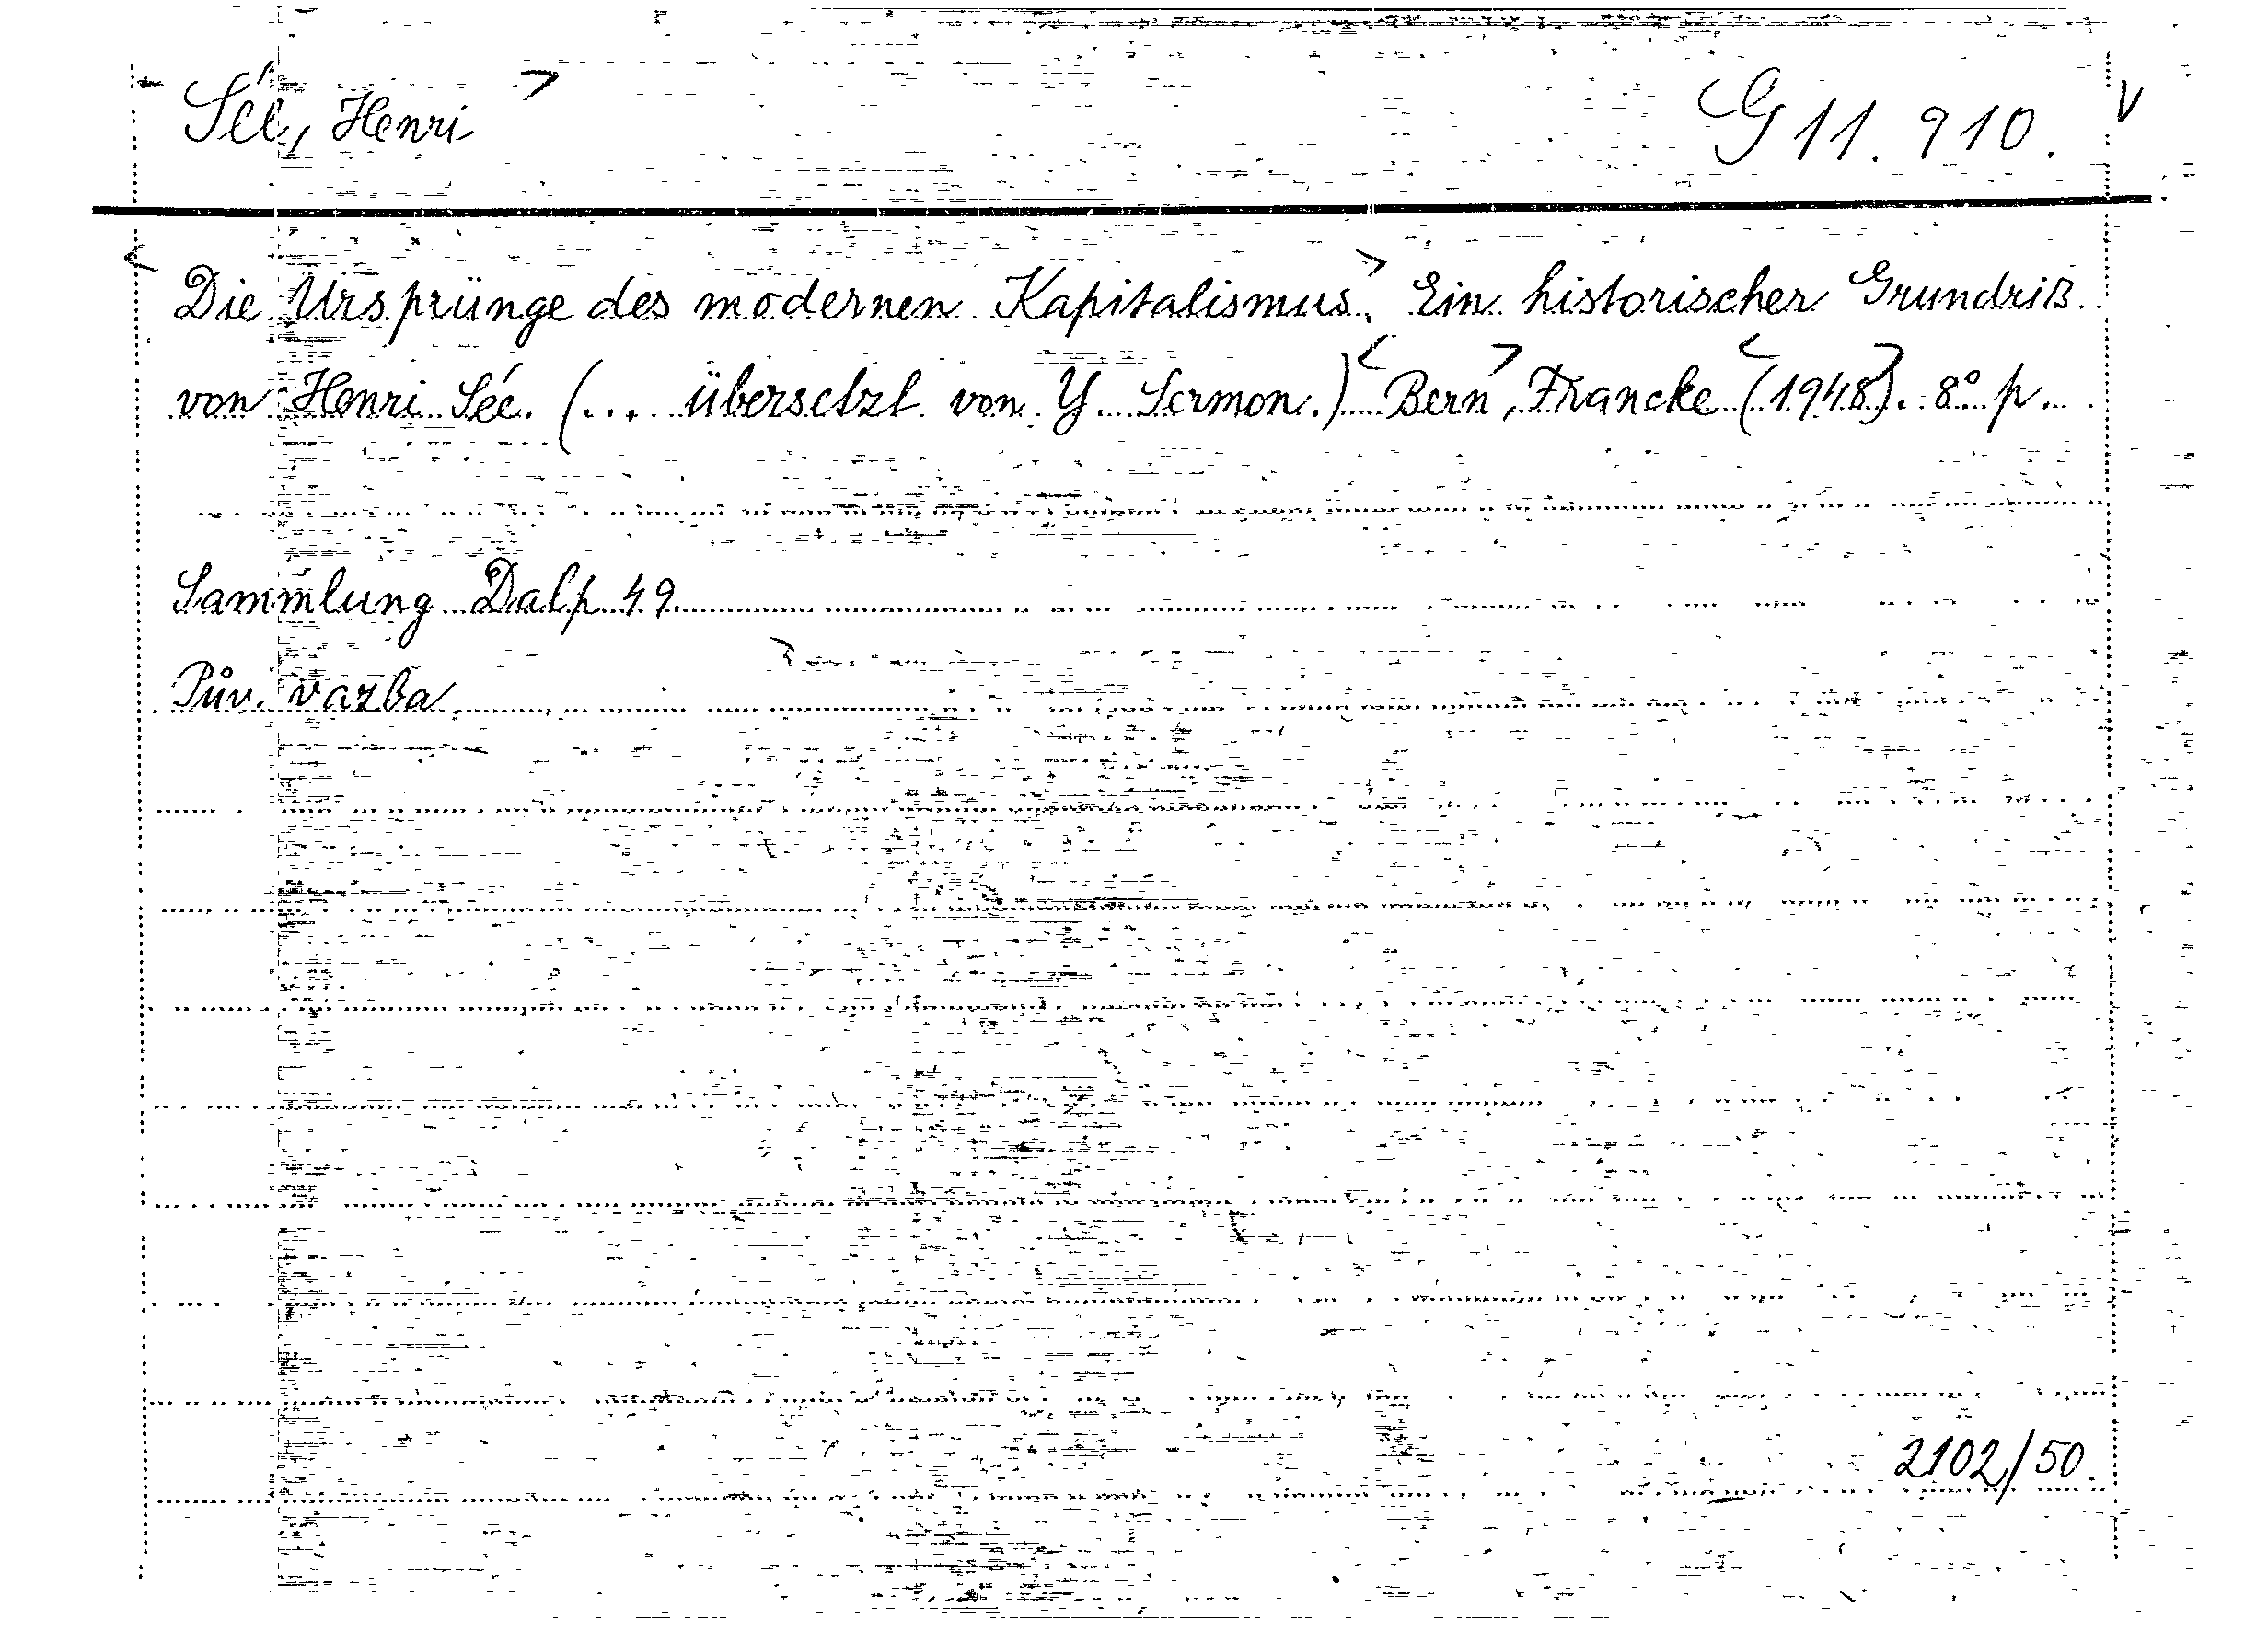 Sée, Henri G 11. 910.
Die Ursprünge des modernen Kapitalismus. Ein historischer Grundriß
von Henri Sée. (... übersetzt von Y. Sermon.) Bern, Francke (1948). 8° p.
Sammlung Dalp 49.
Pův. vazba
2102/50.